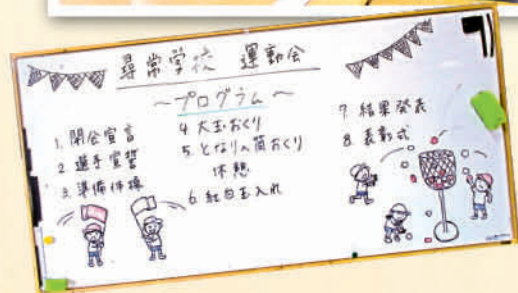 尋常学校 運動会
～プログラム～
1. 開会宣言
2. 選手宣誓
3. 準備体操
4. 大玉おくり
5. となりの筒おくり
休憩
6. 紅白玉入れ
7. 結果発表
8. 表彰式